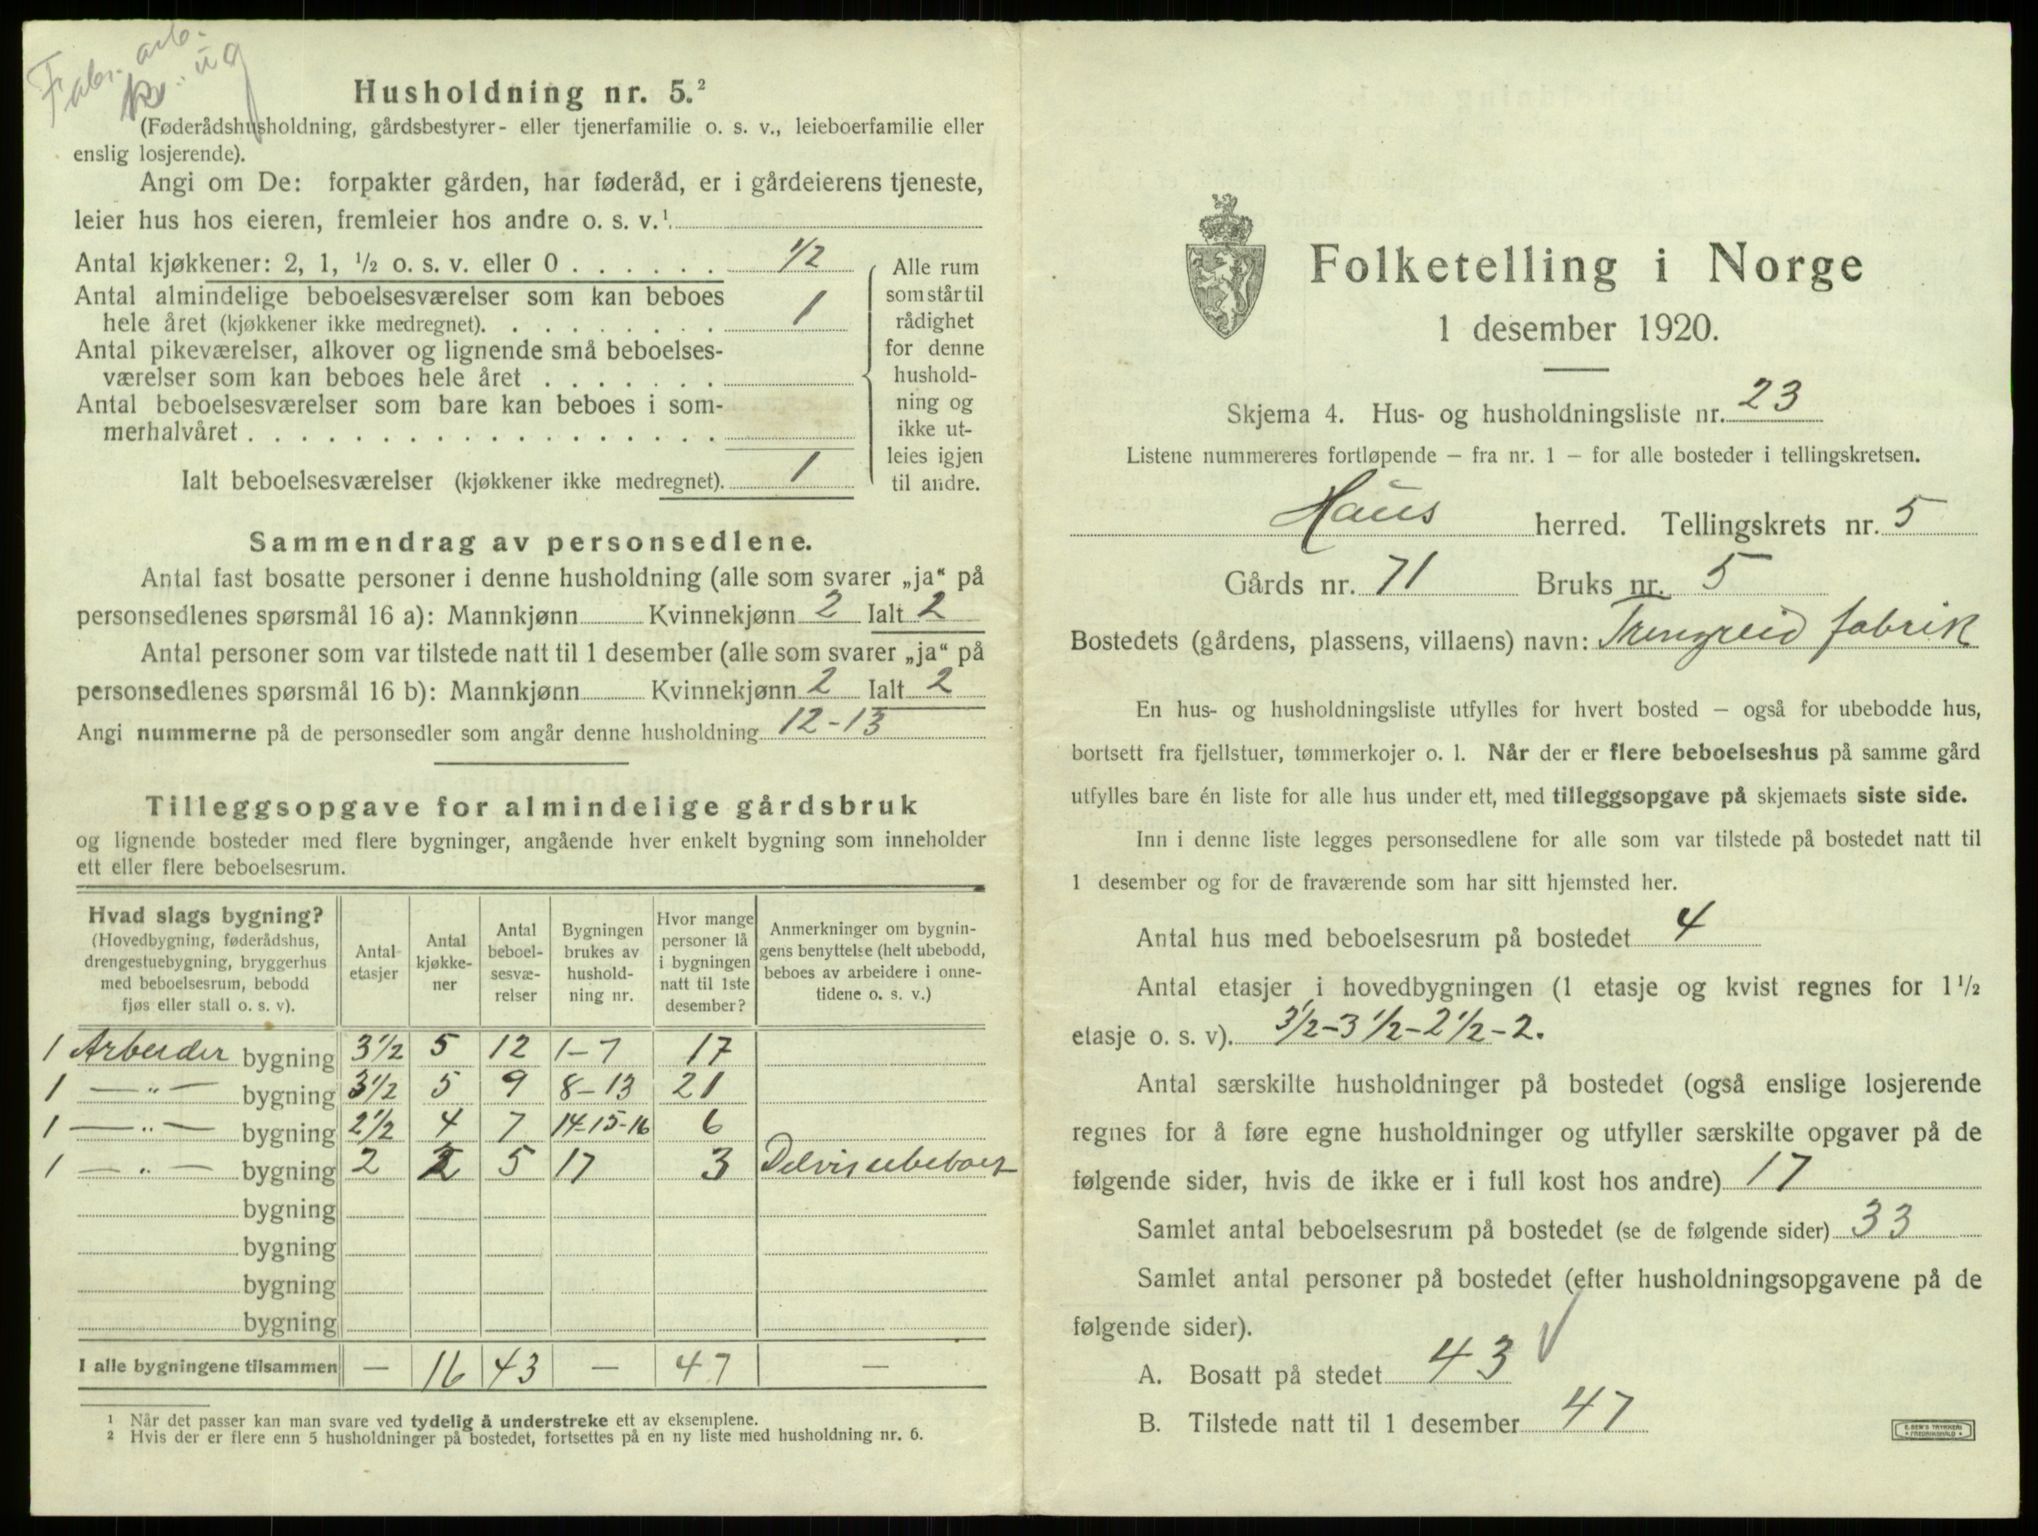 Fabr. arb.
Husholdning nr. 5.²
(Føderådshusholdning, gårdsbestyrer- eller tjenerfamilie o. s. v., leieboerfamilie eller
enslig losjerende).
Angi om De: forpakter gården, har føderåd, er i gårdeierens tjeneste,
leier hus hos eieren, fremleier hos andre o. s. v.¹
Antal kjøkkener: 2, 1, ½ o. s. v. eller 0 . . . . . . 1/2
Antal almindelige beboelsesværelser som kan beboes
hele året (kjøkkener ikke medregnet). . . . . . . . . 1
Antal pikeværelser, alkover og lignende små beboelses-
værelser som kan beboes hele året . . . . . . .
Antal beboelsesværelser som bare kan beboes i som-
merhalvåret . . . . . . . . . . . . . . . . . .
Ialt beboelsesværelser (kjøkkener ikke medregnet). 1
Alle rum
som står til
rådighet
for denne
hushold-
ning og
ikke ut-
leies igjen
til andre.
Sammendrag av personsedlene.
Antal fast bosatte personer i denne husholdning (alle som svarer „ja“ på
personsedlenes spørsmål 16 a): Mannkjønn Kvinnekjønn 2 Ialt 2
Antal personer som var tilstede natt til 1 desember (alle som svarer „ja“ på
personsedlenes spørsmål 16 b): Mannkjønn Kvinnekjønn 2 Ialt 2
Angi nummerne på de personsedler som angår denne husholdning 12-13
Tilleggsopgave for almindelige gårdsbruk
og lignende bosteder med flere bygninger, angående hver enkelt bygning som inneholder
ett eller flere beboelsesrum.
Hvad slags bygning?
(Hovedbygning, føderådshus,
drengestuebygning, bryggerhus
med beboelsesrum, bebodd
fjøs eller stall o. s. v).
Antal-
etasjer
Antal
kjøkke-
ner
Antal
beboel-
sesvæ-
relser
Bygningen
brukes av
hushold-
ning nr.
Hvor mange
personer lå
i bygningen
natt til 1ste
desember?
Anmerkninger om bygnin-
gens benyttelse (helt ubebodd,
beboes av arbeidere i onne-
tidene o. s. v.)
1 Arbeider bygning 3 1/2 5 12 1-7 17
1 — „ — bygning 3 1/2 5 9 8-13 21
1 — „ — bygning 2 1/2 4 7 14-15-16 6
1 — „ — bygning 2 2 5 17 3 Delvis ubeboet
bygning
bygning
bygning
bygning
I alle bygningene tilsammen — 16 43 — 47 —
¹ Når det passer kan man svare ved tydelig å understreke ett av eksemplene.
² Hvis der er flere enn 5 husholdninger på bostedet, fortsettes på en ny liste med husholdning nr. 6.
Folketelling i Norge
1 desember 1920.
Skjema 4. Hus- og husholdningsliste nr. 23
Listene nummereres fortløpende – fra nr. 1 – for alle bosteder i tellingskretsen.
Haus herred. Tellingskrets nr. 5
Gårds nr. 71 Bruks nr. 5
Bostedets (gårdens, plassens, villaens) navn: Trengreid fabrik
En hus- og husholdningsliste utfylles for hvert bosted – også for ubebodde hus,
bortsett fra fjellstuer, tømmerkojer o. l. Når der er flere beboelseshus på samme gård
utfylles bare én liste for alle hus under ett, med tilleggsopgave på skjemaets siste side.
Inn i denne liste legges personsedlene for alle som var tilstede på bostedet natt til
1 desember og for de fraværende som har sitt hjemsted her.
Antal hus med beboelsesrum på bostedet 4
Antal etasjer i hovedbygningen (1 etasje og kvist regnes for 1½
etasje o. s. v). 3 1/2 - 3 1/2 - 2 1/2 - 2.
Antal særskilte husholdninger på bostedet (også enslige losjerende
regnes for å føre egne husholdninger og utfyller særskilte opgaver på de
følgende sider, hvis de ikke er i full kost hos andre) 17
Samlet antal beboelsesrum på bostedet (se de følgende sider) 33
Samlet antal personer på bostedet (efter husholdningsopgavene på de
følgende sider).
A. Bosatt på stedet 43
B. Tilstede natt til 1 desember 47